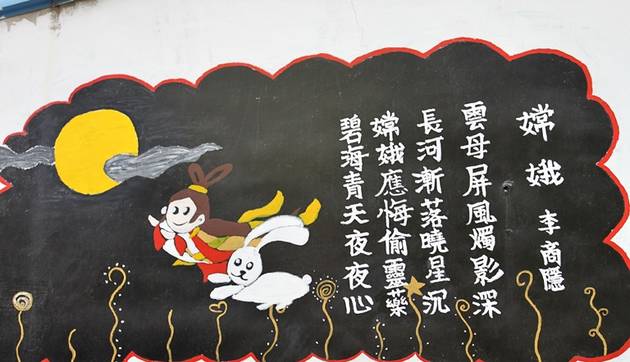 嫦娥
李商隱
雲母屏風燭影深
長河漸落曉星沉
嫦娥應悔偷靈藥
碧海青天夜夜心